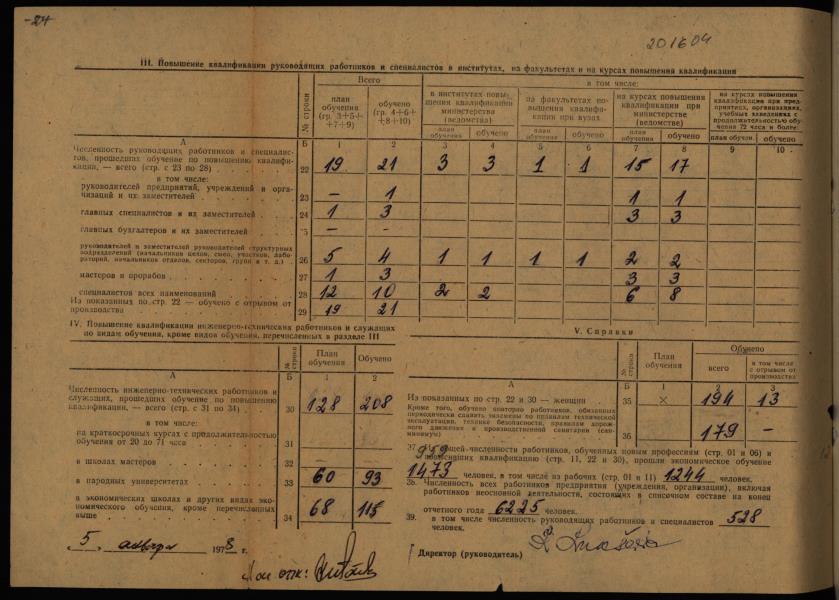 -24
201604
III. Повышение квалификации руководящих работников и специалистов в институтах, на факультетах и на курсах повышения квалификации
№ строки
Всего
в том числе:
план обучения (гр. 3+5+ +7+9)
обучено (гр. 4+6+ +8+10)
в институтах повышения квалификации министерства (ведомства)
на факультетах повышения квалификации при вузах
на курсах повышения квалификации при министерстве (ведомстве)
на курсах повышения квалификации при предприятиях, организациях, учебных заведениях с продолжительностью обучения 72 часа и более:
план обучения обучено план обучения обучено план обучения обучено план обучен. обучено
А Б 1 2 3 4 5 6 7 8 9 10
Численность руководящих работников и специалистов, прошедших обучение по повышению квалификации, — всего (стр. с 23 по 28) 22 19 21 3 3 1 1 15 17
в том числе:
руководителей предприятий, учреждений и организаций и их заместителей 23 — 1 1 1
главных специалистов и их заместителей 24 1 3 3 3
главных бухгалтеров и их заместителей — -
руководителей и заместителей руководителей структурных подразделений (начальников цехов, смен, участков, лабораторий, начальников отделов, секторов, групп и т. д.) 26 5 4 1 1 1 1 2 2
мастеров и прорабов 27 1 3 3 3
специалистов всех наименований 28 12 10 2 2 6 8
Из показанных по стр. 22 — обучено с отрывом от производства 29 19 21
IV. Повышение квалификации инженерно-технических работников и служащих
по видам обучения, кроме видов обучения, перечисленных в разделе III
№ строки План обучения Обучено
А Б 1 2
Численность инженерно-технических работников и служащих, прошедших обучение по повышению квалификации, — всего (стр. с 31 по 34) 30 128 208
в том числе:
на краткосрочных курсах с продолжительностью обучения от 20 до 71 часа 31
в школах мастеров 32
в народных университетах 33 60 93
в экономических школах и других видах экономического обучения, кроме перечисленных выше 34 68 115
5 января 1978 г.
V. Справки
№ строки План обучения Обучено
всего в том числе с отрывом от производства
А Б 1 2 3
Из показанных по стр. 22 и 30 — женщин 35 × 194 13
Кроме того, обучено повторно работников, обязанных периодически сдавать экзамены по правилам технической эксплуатации, технике безопасности, правилам дорожного движения и производственной санитарии (санминимум) 36 179 —
37. общей численности работников, обученных новым профессиям (стр. 01 и 06) и
повысивших квалификацию (стр. 11, 22 и 30), прошли экономическое обучение
1473 человек, в том числе из рабочих (стр. 01 и 11) 1244 человек.
38. Численность всех работников предприятия (учреждения, организации), включая
работников неосновной деятельности, состоящих в списочном составе на конец
отчетного года 6225 человек.
39. в том числе численность руководящих работников и специалистов 528
человек.
Директор (руководитель)